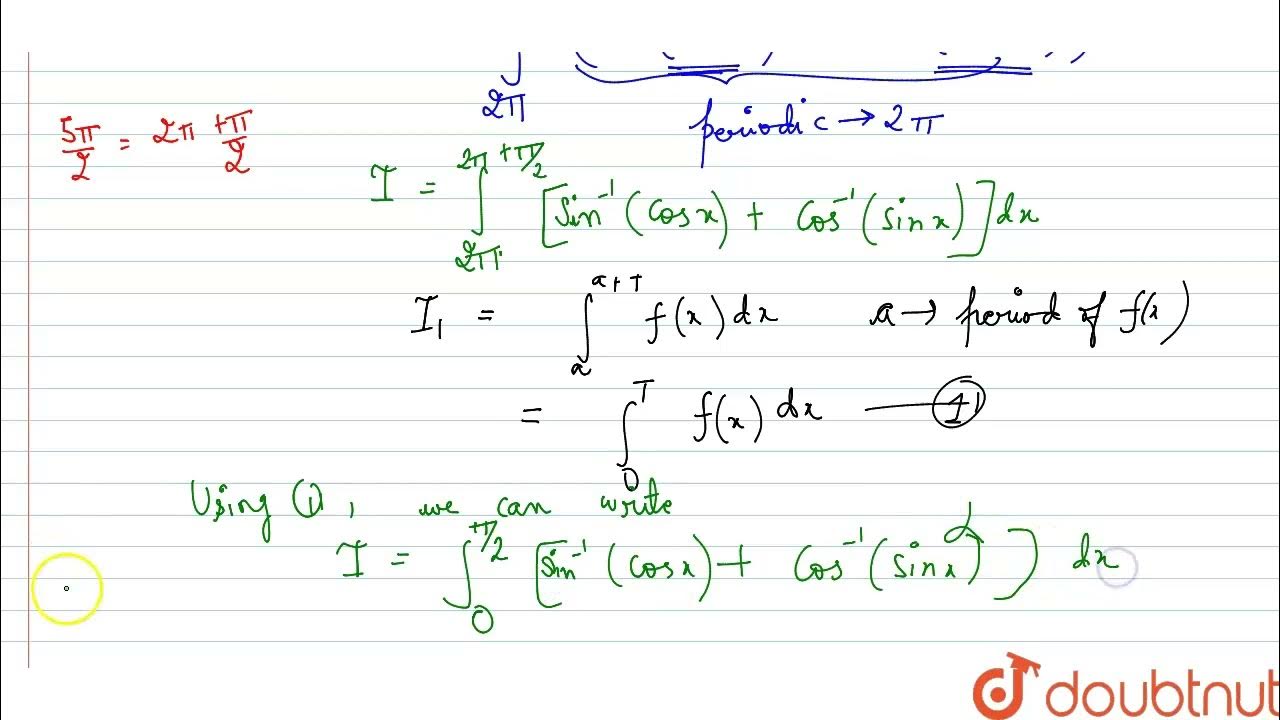 ∫ 2π
periodic → 2π
5π/2 = 2π + π/2
I = ∫_{2π}^{2π+π/2} [Sin⁻¹(Cos x) + Cos⁻¹(Sin x)] dx
I₁ = ∫_a^{a+T} f(x) dx a → period of f(x)
= ∫_0^T f(x) dx — ①
Using ①, we can write
I = ∫_0^{π/2} [Sin⁻¹(Cos x) + Cos⁻¹(Sin x)] dx
doubtnut